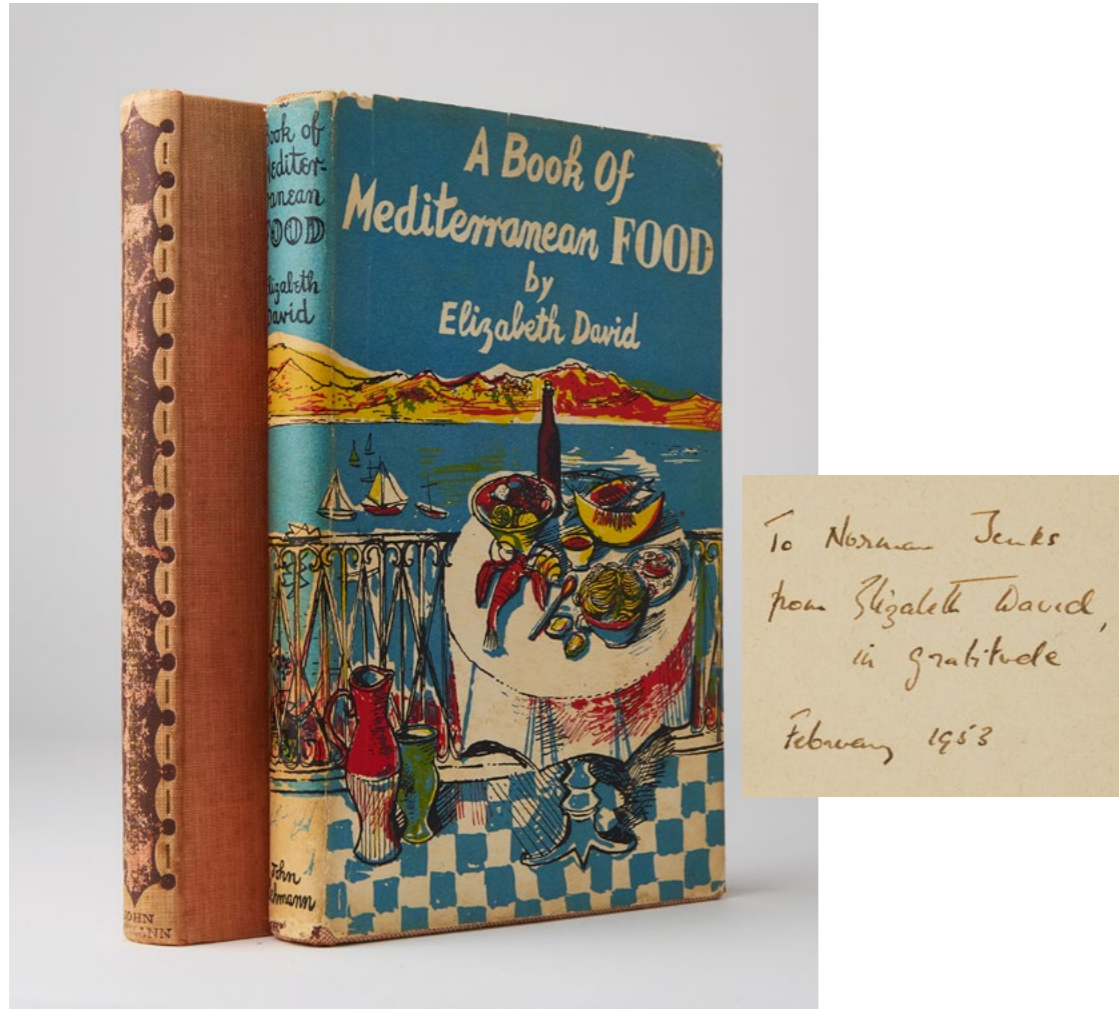 JOHN
ANN
Book of
Mediter-
ranean
FOOD
Elizabeth
David
John
Lehmann
A Book Of
Mediterranean FOOD
by
Elizabeth David
To Norman Jenks
from Elizabeth David,
in gratitude
February 1953